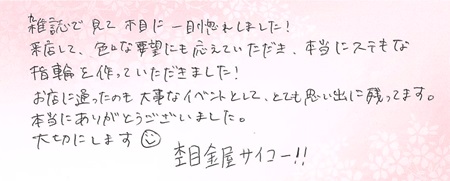 雑誌で見て木目に一目惚れしました！
来店して、色んな要望にも応えていただき、本当にステキな
指輪を作っていただきました！
お店に通ったのも大事なイベントとして、とても思い出に残ってます。
本当にありがとうございました。
大切にします
杢目金屋サイコー!!